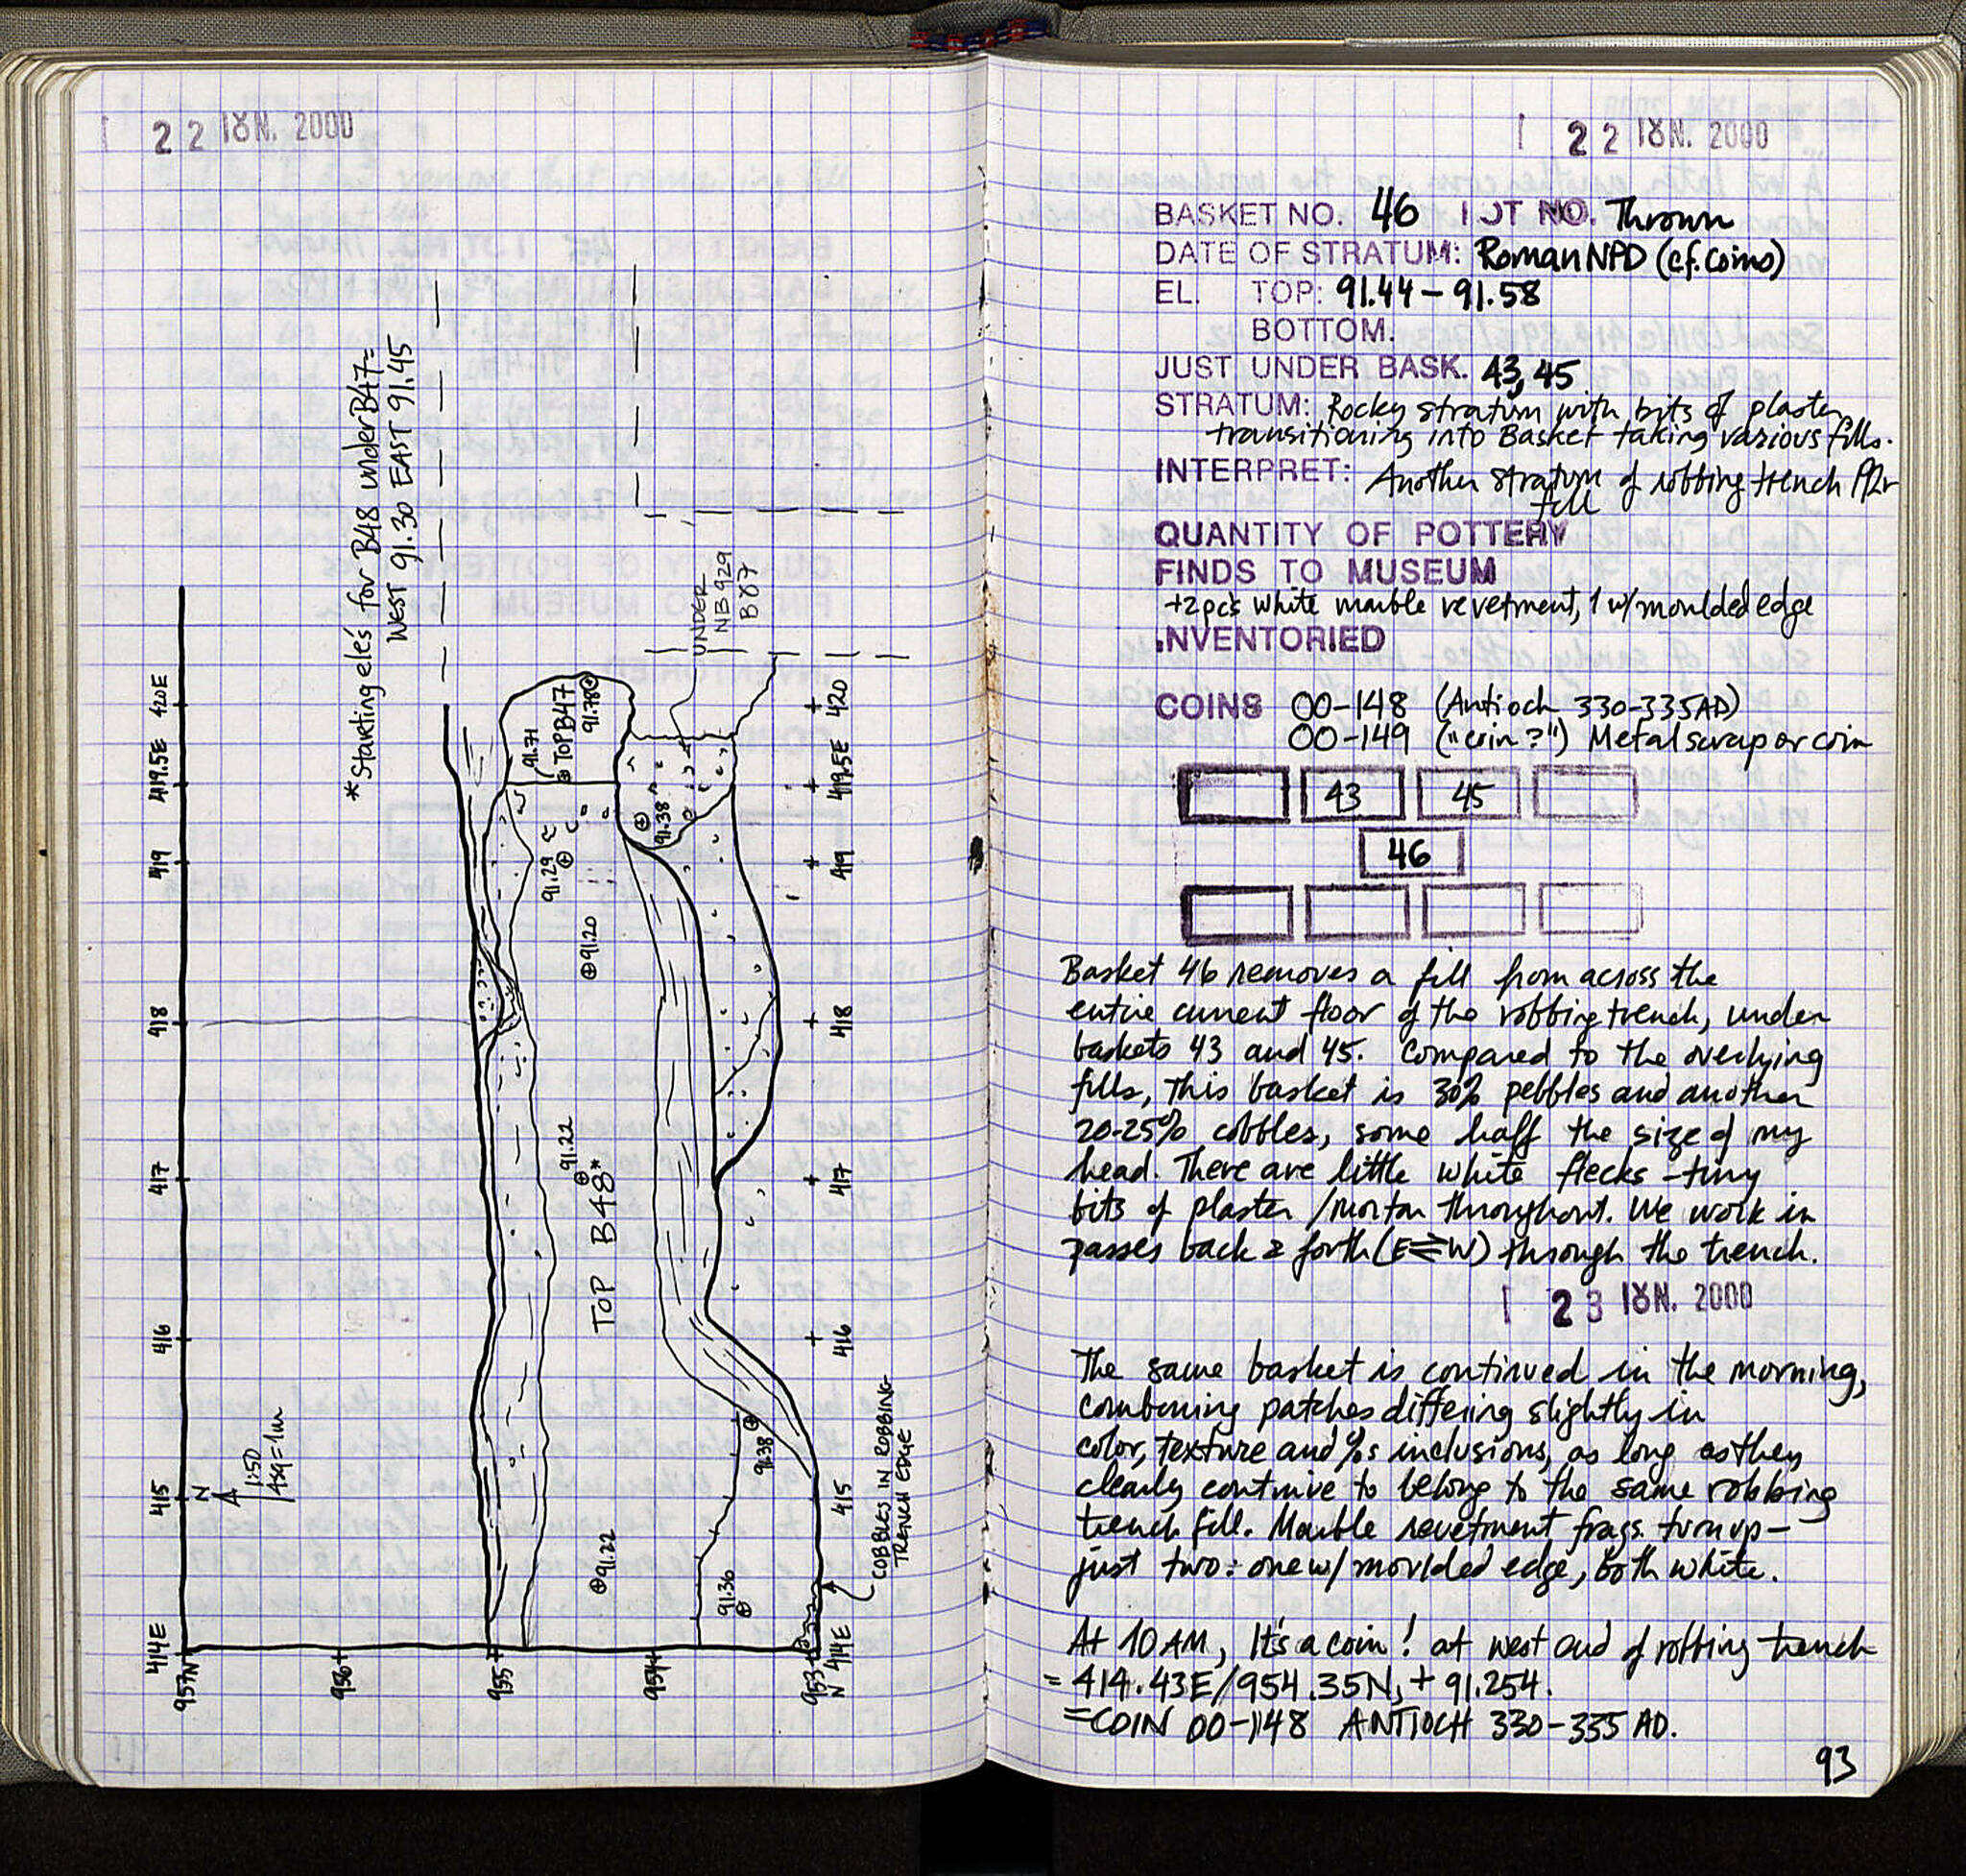 22 ΙȢΝ. 2000
*Starting el's for B48 under B47=
WEST 91.30 EAST 91.45
414E
415
416
417
418
419
419.5E
420E
957N
956
955
954
953
N
N
1:50
4sq=1m
91.71
TOP B47
91.78
91.29
91.20
91.38
TOP B48*
91.22
91.22
91.38
91.36
UNDER
NB 929
B87
414E
415
416
417
418
419
419.5E
420
COBBLES IN ROBBING
TRENCH EDGE
22 ΙȢΝ. 2000
BASKET NO. 46 LOT NO. Thrown
DATE OF STRATUM: Roman NPD (cf. coins)
EL. TOP: 91.44 – 91.58
BOTTOM.
JUST UNDER BASK. 43, 45
STRATUM: Rocky stratum with bits of plaster
transitioning into Basket taking various fills.
INTERPRET: Another stratum of robbing trench
fill
QUANTITY OF POTTERY
FINDS TO MUSEUM
+2 pcs white marble revetment, 1 w/ moulded edge
INVENTORIED
COINS 00-148 (Antioch 330-335AD)
00-149 ("coin?") Metal scrap or coin
43 45
46
Basket 46 removes a fill from across the
entire current floor of the robbing trench, under
baskets 43 and 45. Compared to the overlying
fills, this basket is 30% pebbles and another
20-25% cobbles, some half the size of my
head. There are little white flecks – tiny
bits of plaster/mortar throughout. We work in
passes back & forth (E⇄W) through the trench.
23 ΙȢΝ. 2000
The same basket is continued in the morning,
combining patches differing slightly in
color, texture and %s inclusions, as long as they
clearly continue to belong to the same robbing
trench fill. Marble revetment frags. turn up –
just two: one w/ moulded edge, both white.
At 10 AM, It's a coin! at west end of robbing trench
= 414.43E/954.35N, + 91.254.
= COIN 00-148 ANTIOCH 330-335 AD.
93